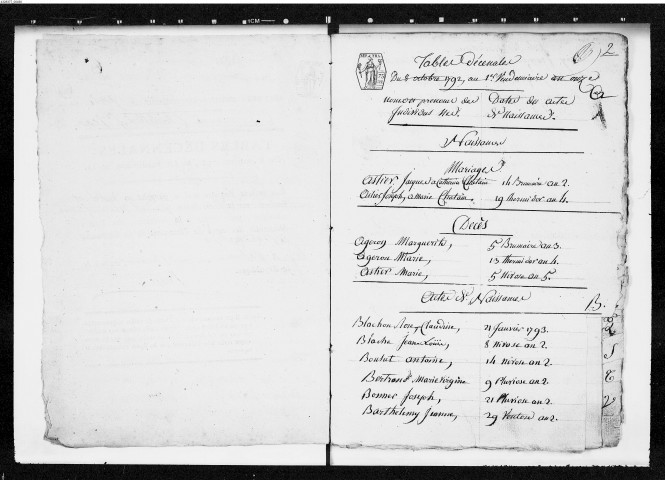 2
Table Décennale
Du 8 octobre 1792, au 1er Vendemiaire an onze
noms et prenoms des Dates des actes
Individus Nés. De Naissance.
Naissances
Mariages
Astier Jacques a Catherine Chatain 14 Brumaire an 2.
Astier Joseph, a Marie Chatain. 19 thermidor an 4.
Décès
Ageron Marguerite, 5 Brumaire an 3.
Ageron Marie, 13 thermidor an 4.
Astier Marie, 5 Nivose an 5.
Actes De Naissances
B.
Blachon Claudine, 21 Janvier 1793.
Blache Jean Louis, 8 nivose an 2.
Boulut antoine, 14 nivose an 2.
Bertrand Marie Virginie 9 Pluviose an 2.
Bonnet Joseph, 21 Pluviose an 2.
Barthelemy Jeanne, 29 Ventose an 2.